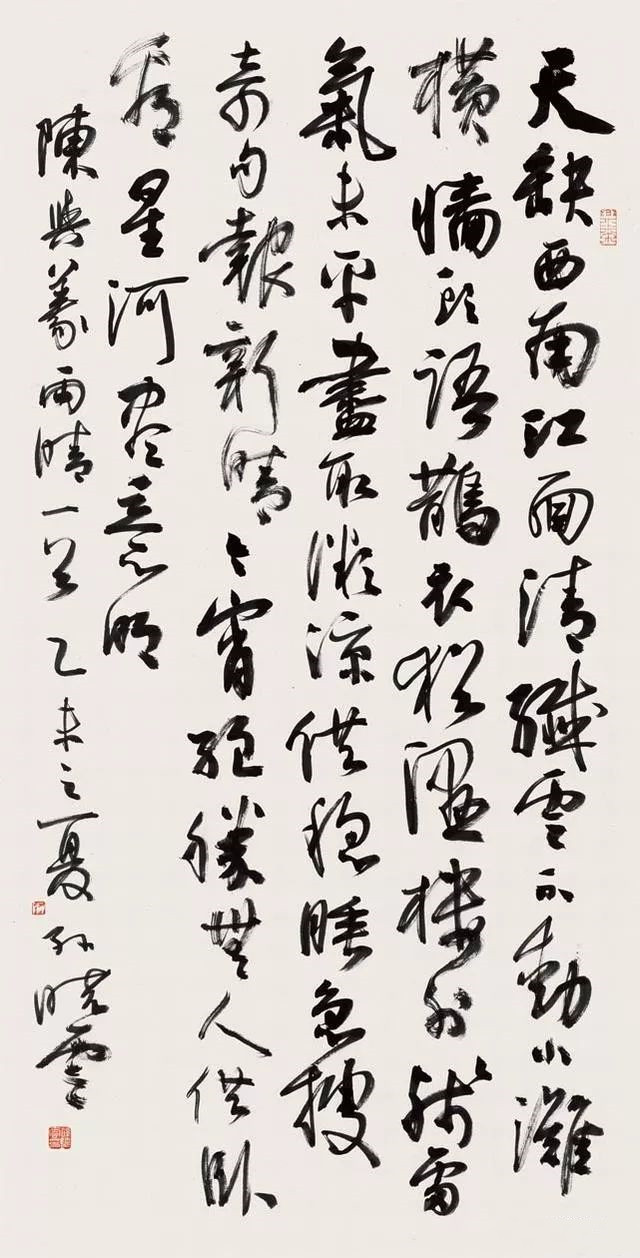 天缺西南江面清纖雲不動小灘
橫牆頭語鵲衣猶濕樓外殘雷
氣未平盡取微涼供穩睡急搜
奇句報新晴今宵絕勝無人供卧
看星河盡意明
陳與義雨晴一首 乙未之夏 孫曉雲